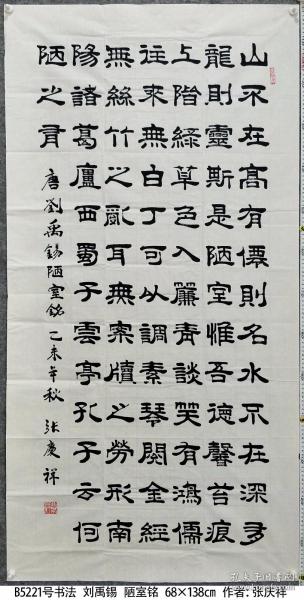 山不在高有僊則名水不在深有
龍則靈斯是陋室惟吾德馨苔痕
上階綠草色入簾青談笑有鴻儒
往來無白丁可以調素琴閱金經
無絲竹之亂耳無案牘之勞形南
陽諸葛廬西蜀子雲亭孔子云何
陋之有
唐劉禹錫陋室銘 乙未年秋 張慶祥
B5221号书法 刘禹锡 陋室铭 68×138㎝ 作者:张庆祥